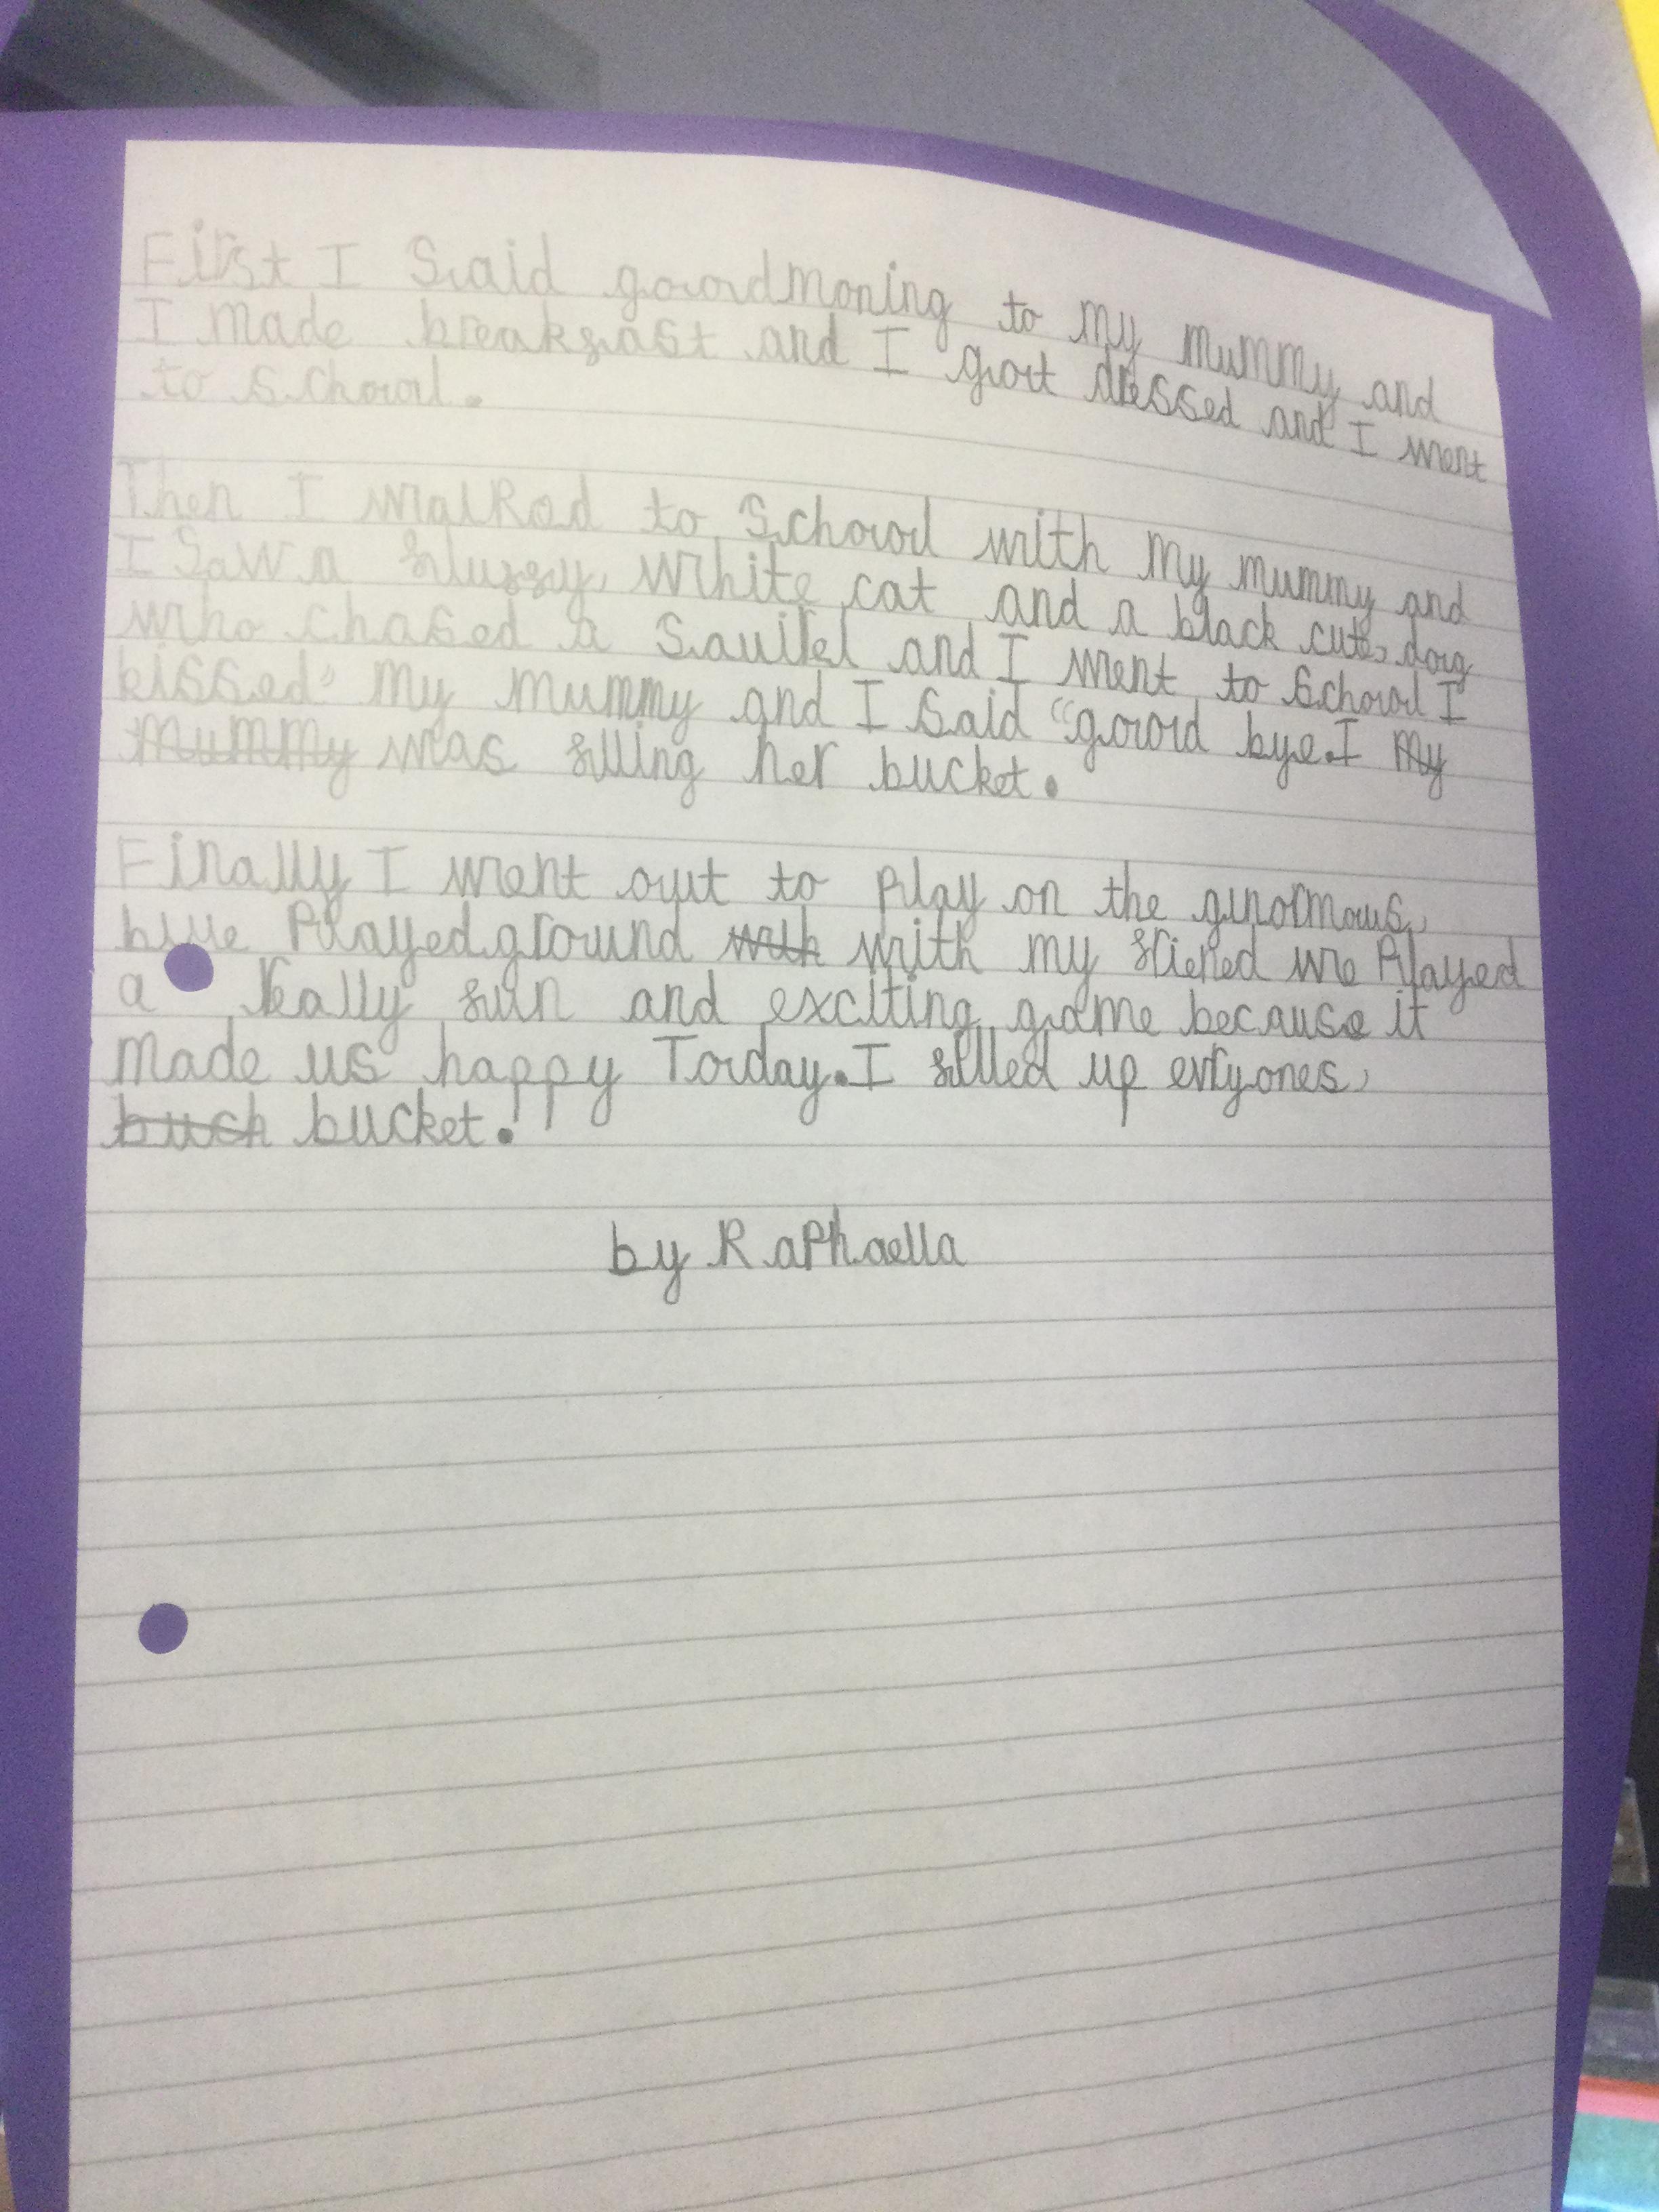 First I Said goodmoning to my mummy and
I made breakfast and I got dressed and I went
to school.
Then I walked to School with my mummy and
I Saw a fluffy, white cat and a black cute, dog
who chased a Squirel and I went to school I
kissed my mummy and I said “good bye. I my
mummy was filling her bucket.
Finally I went out to play on the ginormous,
blue Playedground with with my friened we Played
a really fun and exciting game because it
made us happy Today. I filled up evryones,
buch bucket.
by RaPhaella